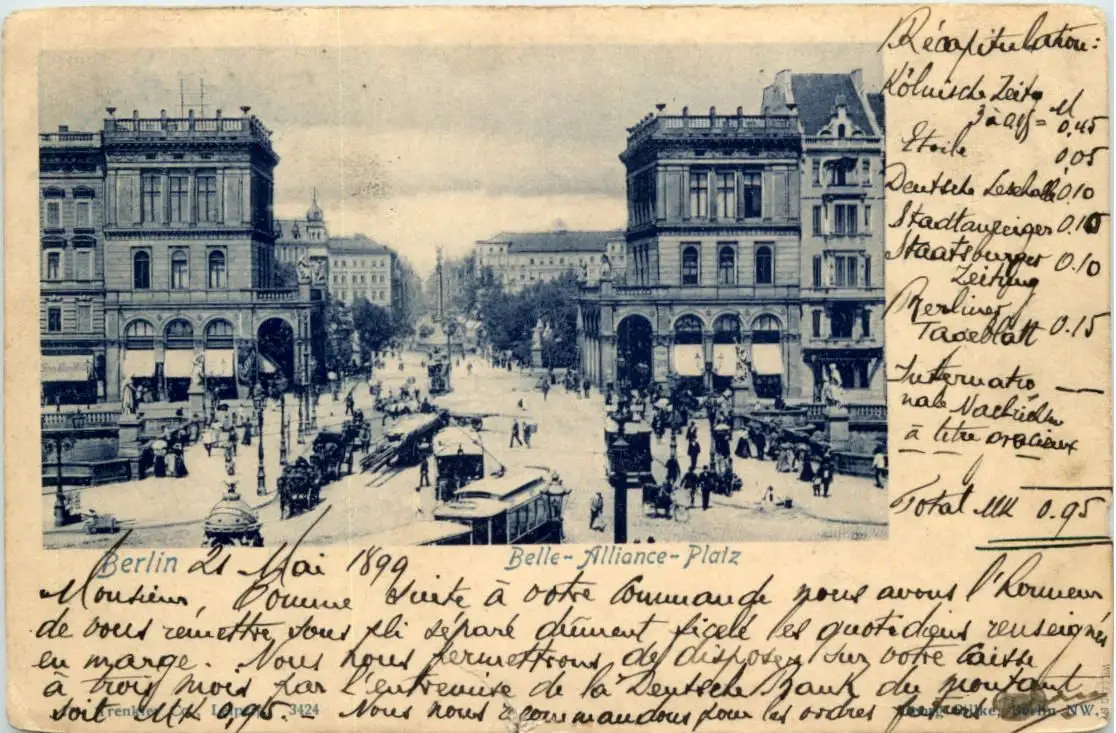 Récapitulation:
Kölnische Zeitg M
3 à = 0.45
Etoile 0.05
Deutsche Lesehalle 0.10
Stadtanzeiger 0.10
Staatsburger
Zeitung 0.10
Berliner
Tageblatt 0.15
Internatio
nale Nachrichn —
à titre gracieux
Total Mk 0.95
Berlin 21 Mai 1899
Belle-Alliance-Platz
Monsieur, Comme suite à votre Commande nous avons l'honneur
de vous remettre, sous pli séparé dûment ficelé les quotidiens renseignés
en marge. Nous nous permettrons de disposer sur votre Caisse
à trois mois par l'entremise de la Deutsche Bank du montant
soit Mk 0,95. — Nous nous recommandons pour les ordres futurs
Trenkler Co., Leipzig. 3424
Georg Stilke, Berlin NW.